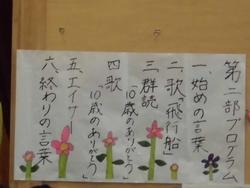 第二部プログラム
一、始めの言葉
二、歌「飛行船」
三、群読
「10歳のありがとう」
四、歌
「10歳のありがとう」
五、エイサー
六、終わりの言葉